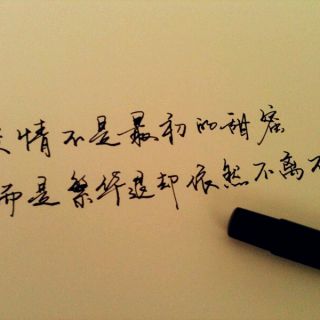 情不是最初的甜蜜
而是繁华退却依然不离不